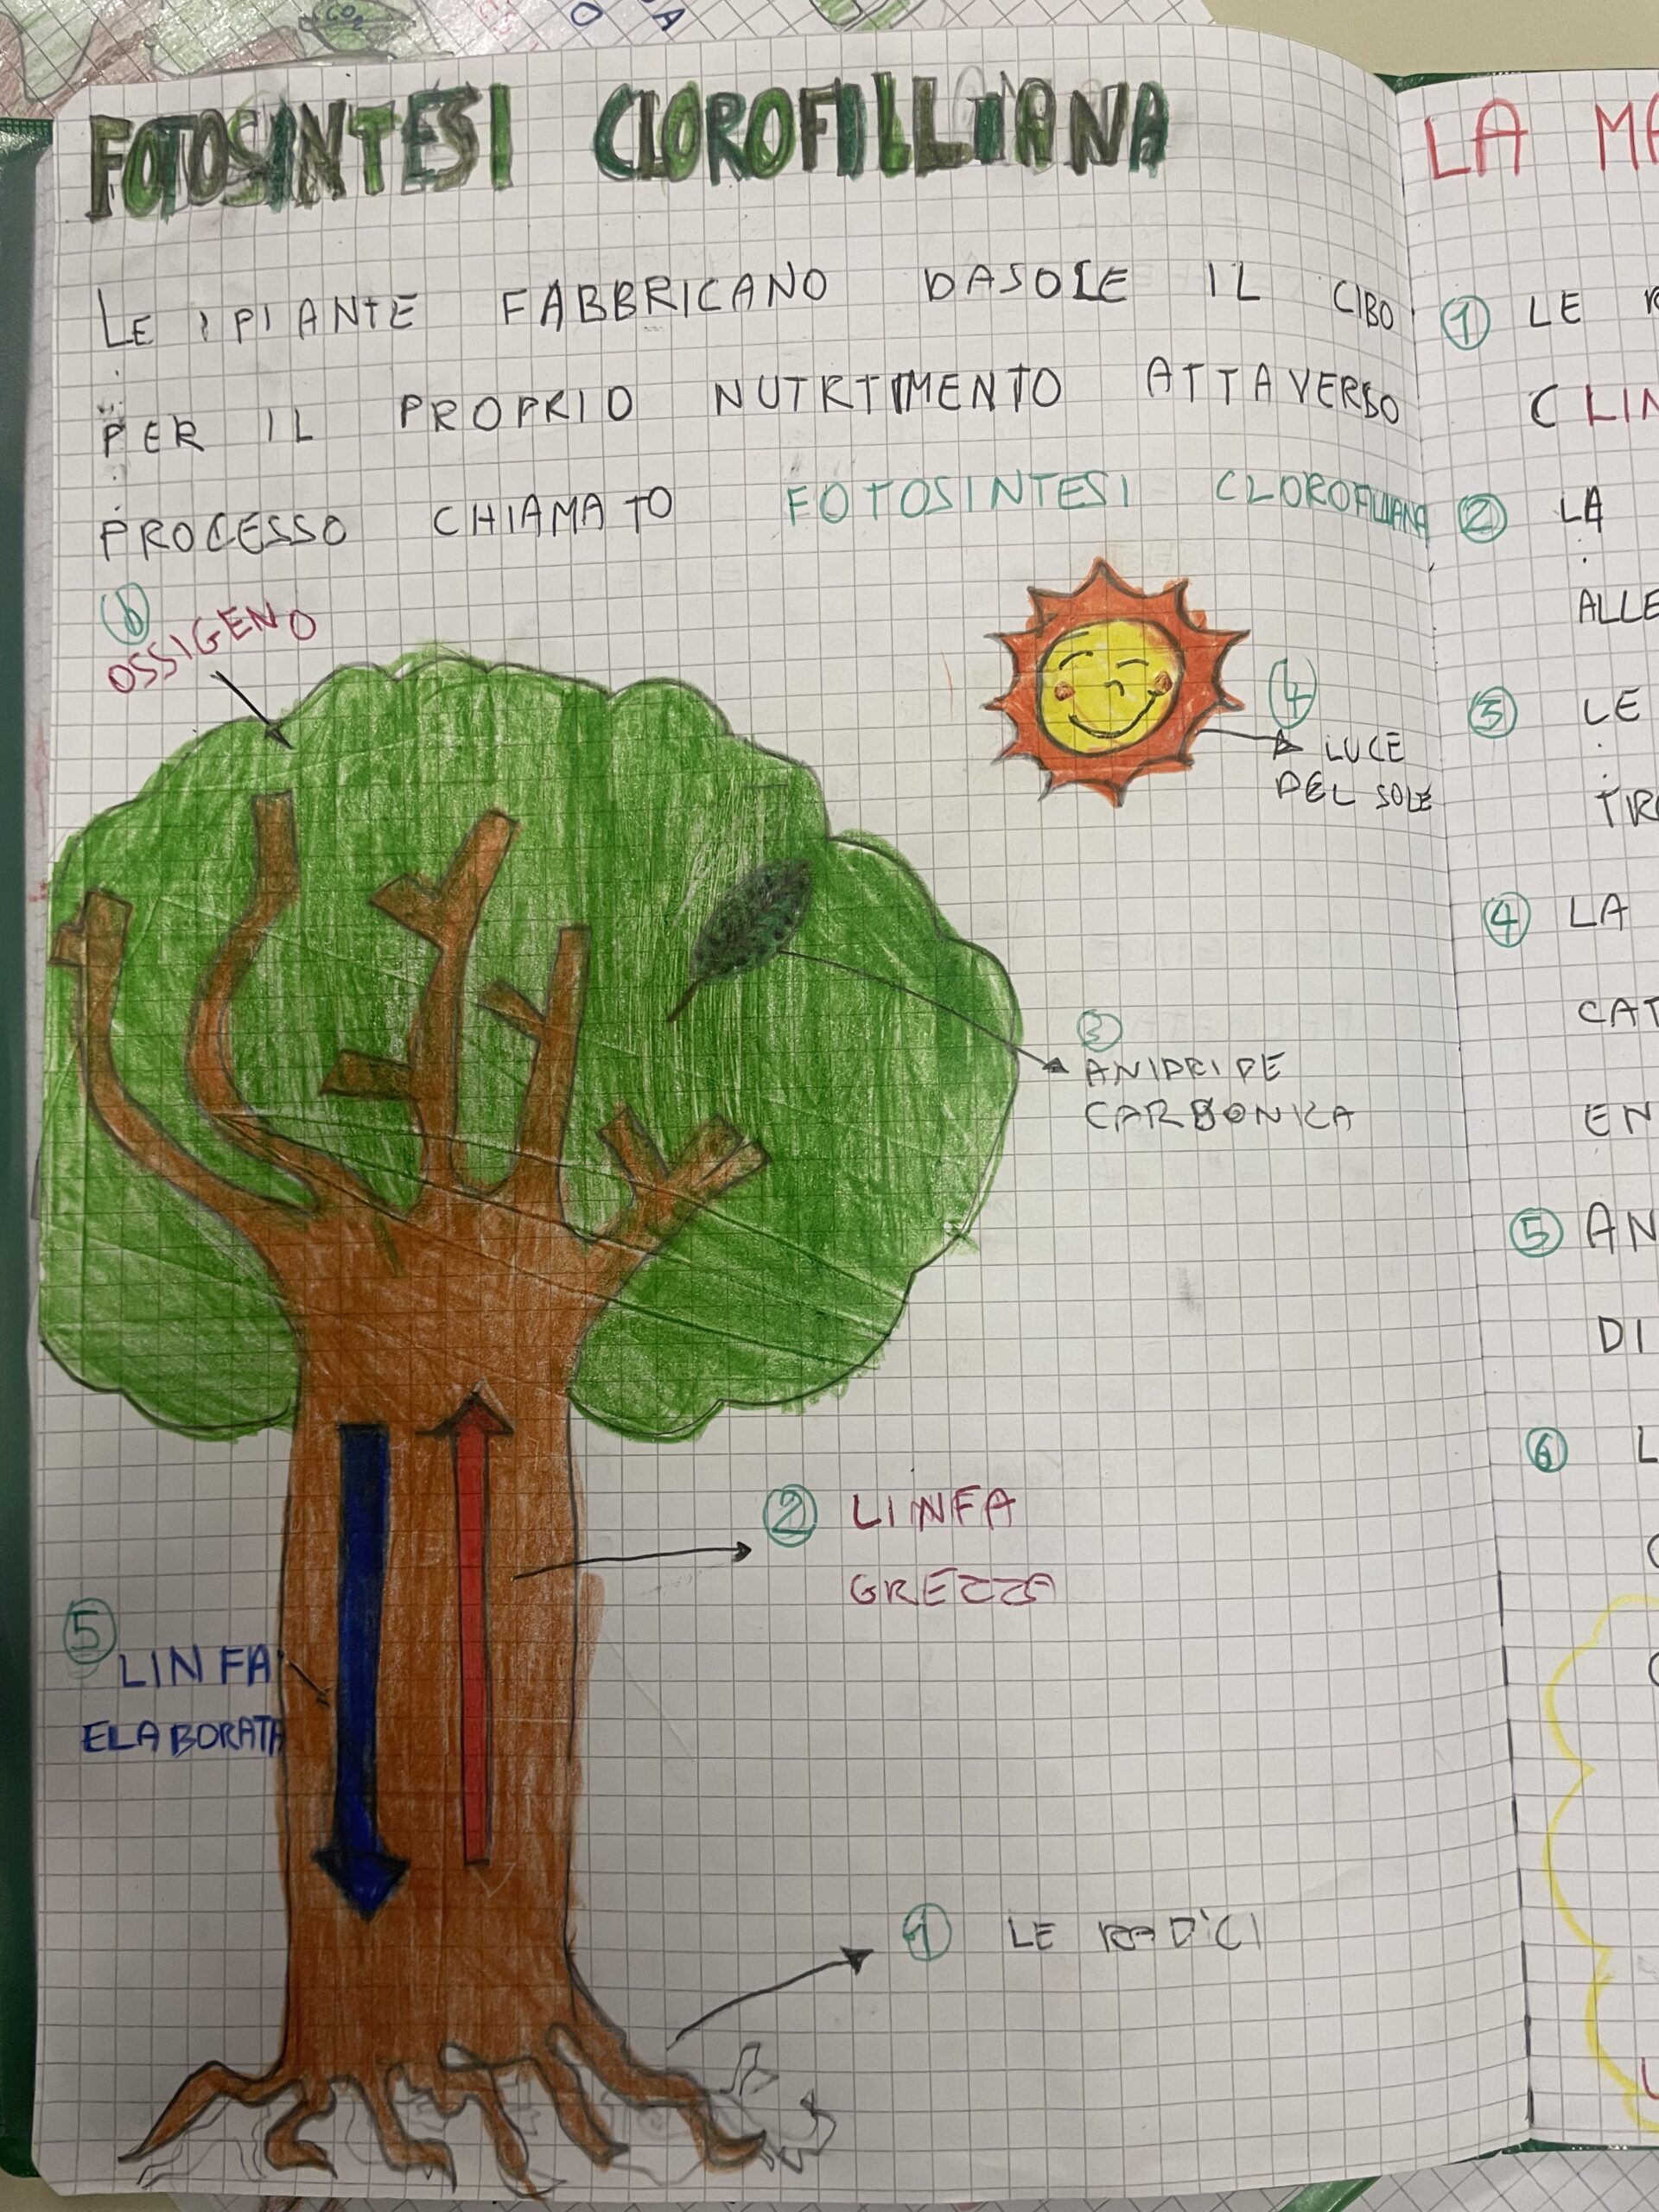 CO2
FOTOSINTESI CLOROFILLIANA
LE PIANTE FABBRICANO DASOLE IL CIBO
PER IL PROPRIO NUTRTIMENTO ATTAVERSO
PROCESSO CHIAMATO FOTOSINTESI CLOROFILLIANA
6
OSSIGENO
4
LUCE
DEL SOLE
3
ANIDRIDE
CARBONICA
2 LINFA
GREZZA
5
LINFA
ELABORATA
1 LE RADICI
LA MA
1 LE R
C LIN
2 LA
ALLE
3 LE
TR
4 LA
CAT
EN
5 AN
DI
6 L